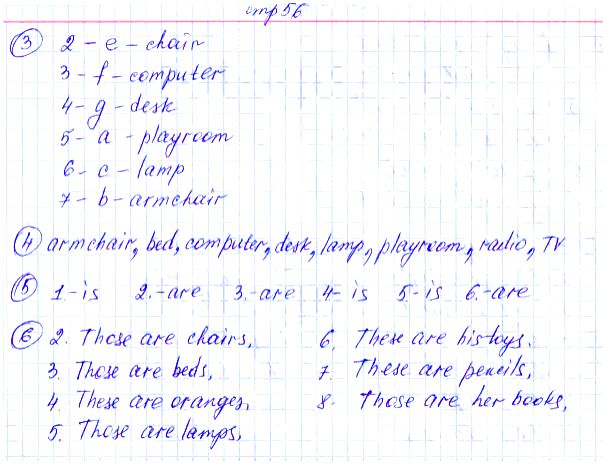 стр 56
③ 2 - e - chair
3 - f - computer
4 - g - desk
5 - a - playroom
6 - c - lamp
7 - b - armchair
④ armchair, bed, computer, desk, lamp, playroom, radio, TV
⑤ 1.-is 2.-are 3.-are 4-is 5.-is 6.-are
⑥ 2. Those are chairs.
3. Those are beds.
4. These are oranges.
5. Those are lamps.
6. These are his toys.
7. These are pencils.
8. Those are her books.